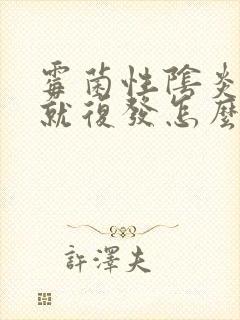 霉菌性陰炎
就復發怎麼
許澤夫